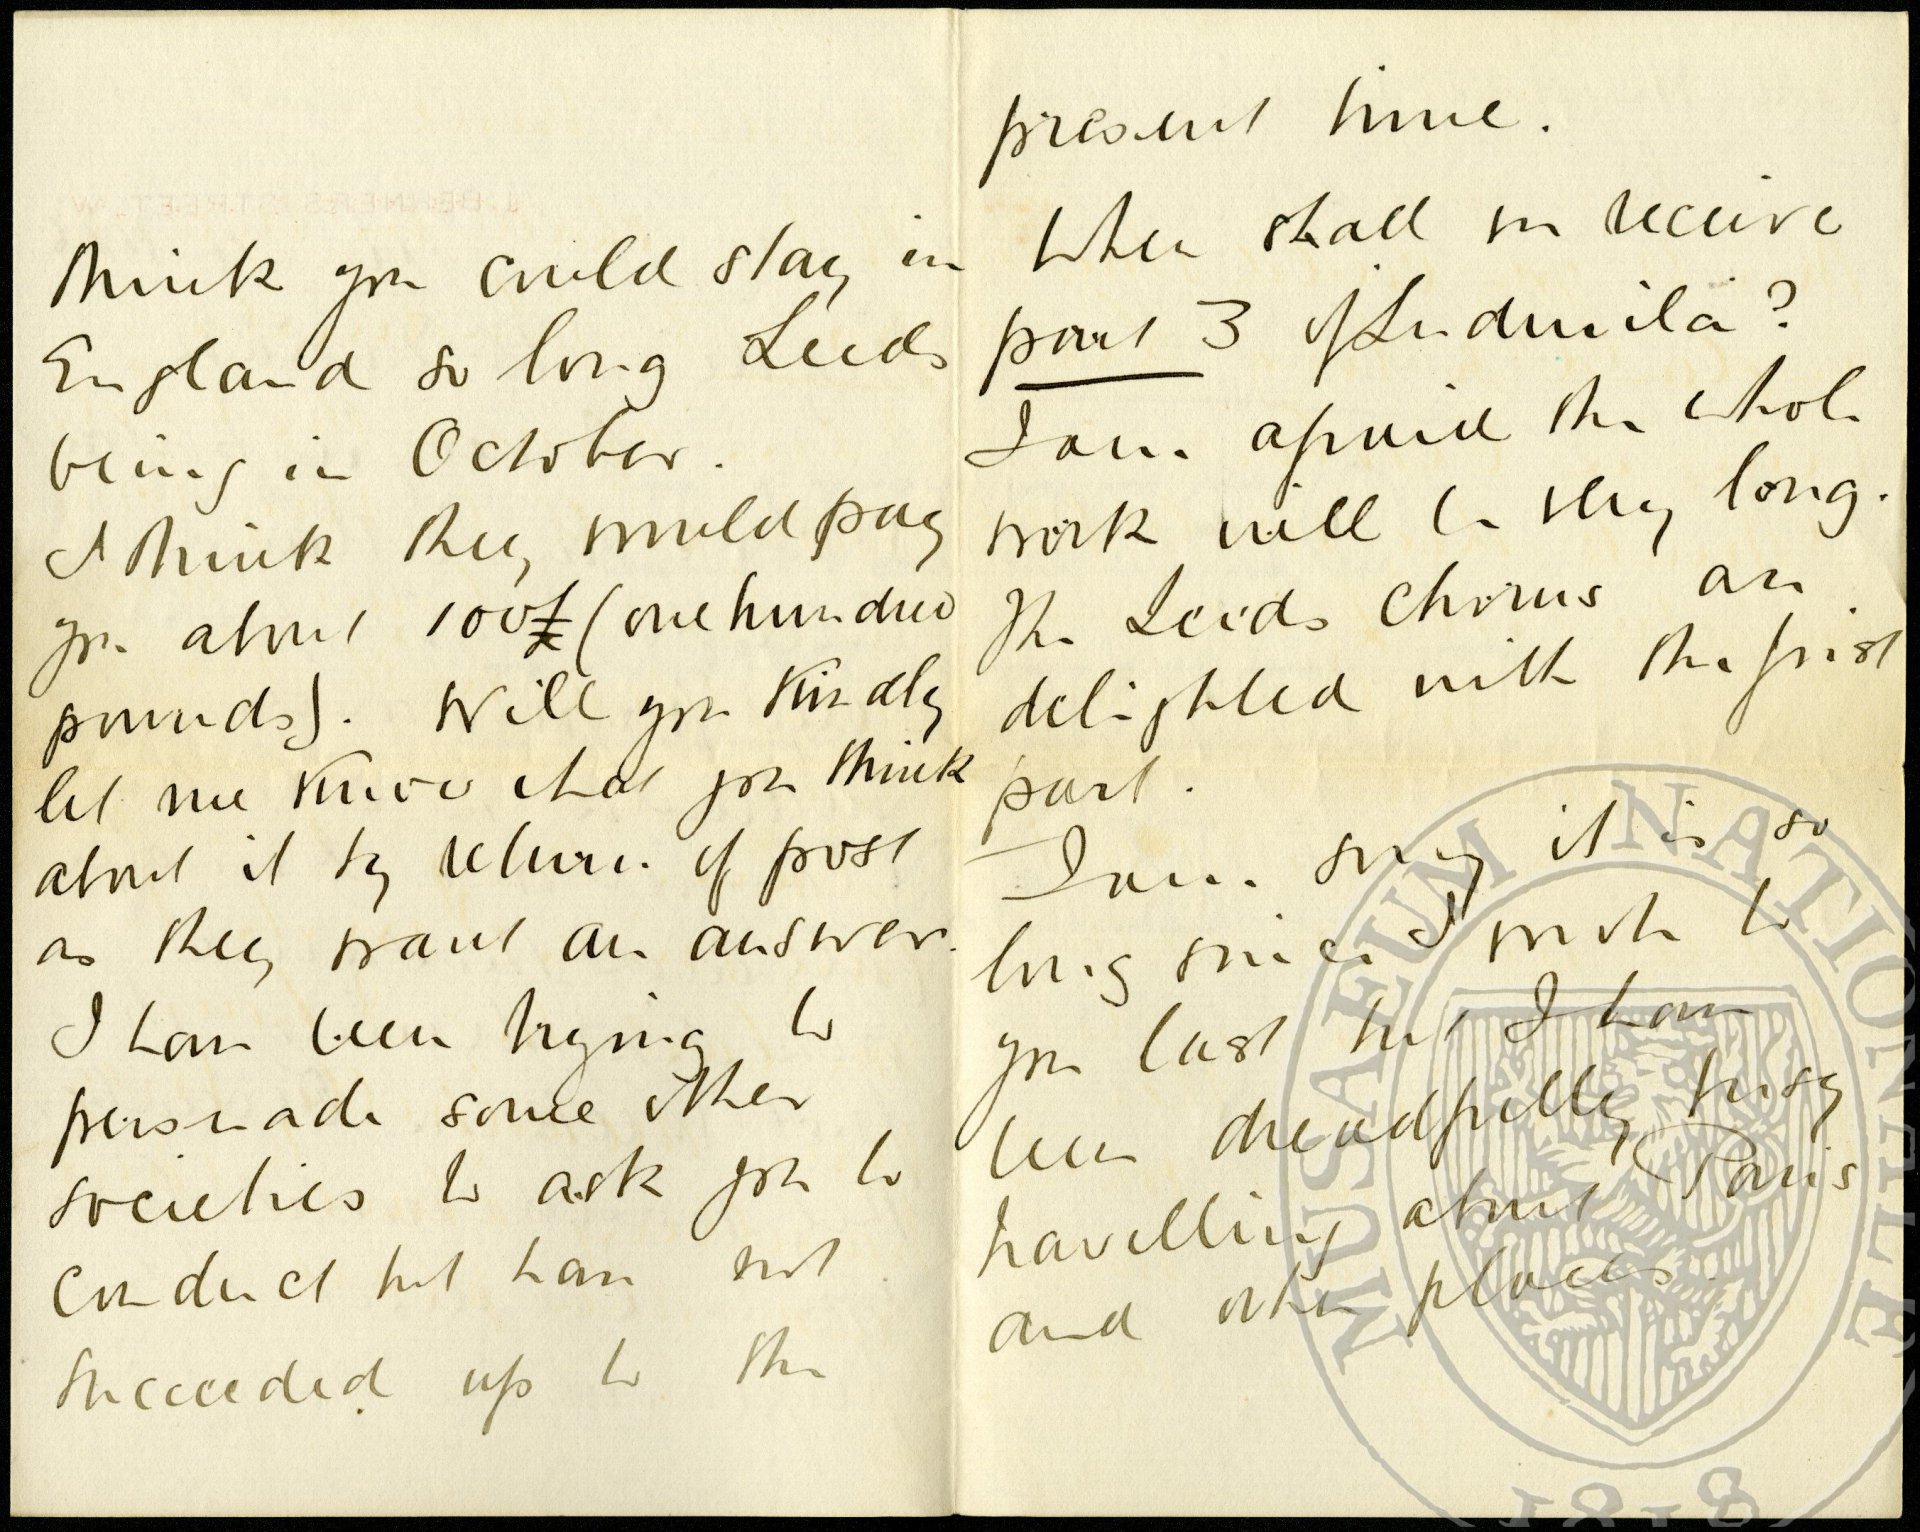 think you could stay in
England so long Leeds
being in October.
I think they would pay
you about 100£ (one hundred
pounds). Will you kindly
let me know what you think
about it by return of post
as they want an answer.
I have been trying to
persuade some other
societies to ask you to
conduct but have not
succeeded up to the
present time.
When shall we receive
part 3 of Ludmila?
I am afraid the whole
work will be very long.
The Leeds chorus are
delighted with the first
part.
I am sorry it is so
long since I wrote to
you last but I have
been dreadfully busy
travelling about Paris
and other places.
MUSAEUM NATIONALE
1818